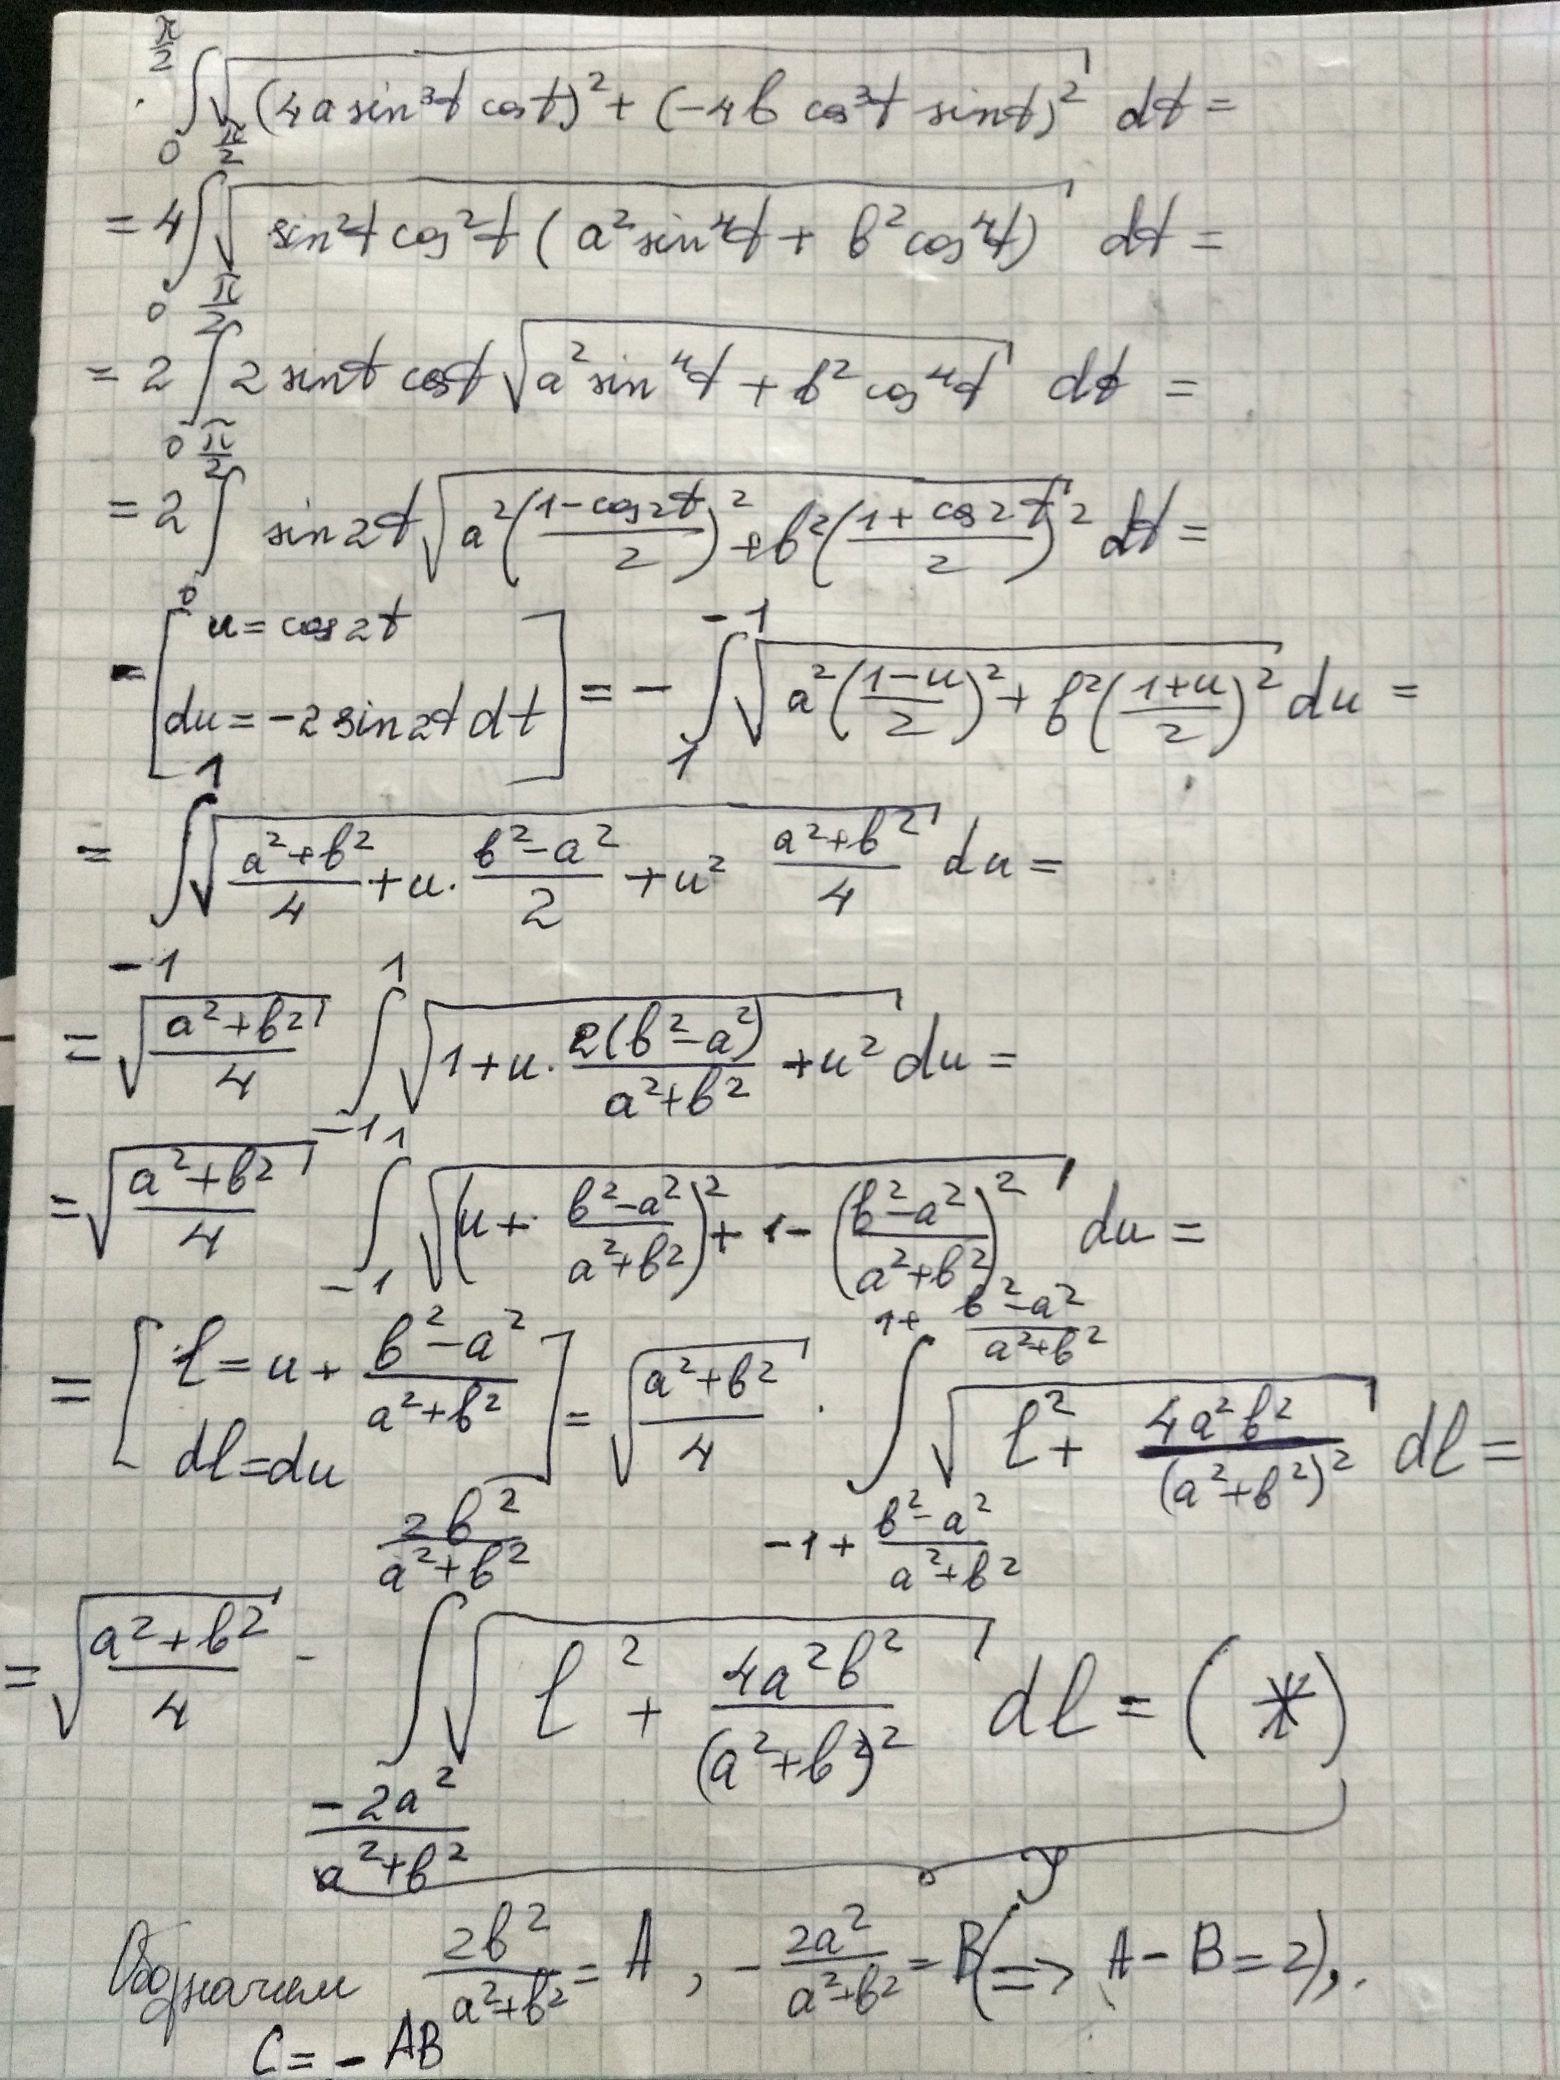 $\int_{0}^{\frac{\pi}{2}} \sqrt{(4a\sin^3 t \cos t)^2 + (-4b\cos^3 t \sin t)^2}\, dt =$
$= 4\int_{0}^{\frac{\pi}{2}} \sqrt{\sin^2 t \cos^2 t (a^2 \sin^4 t + b^2 \cos^4 t)}\, dt =$
$= 2\int_{0}^{\frac{\pi}{2}} 2\sin t \cos t \sqrt{a^2 \sin^4 t + b^2 \cos^4 t}\, dt =$
$= 2\int_{0}^{\frac{\pi}{2}} \sin 2t \sqrt{a^2 \left(\frac{1-\cos 2t}{2}\right)^2 + b^2 \left(\frac{1+\cos 2t}{2}\right)^2}\, dt =$
$= \left[\begin{array}{l} u = \cos 2t \\ du = -2\sin 2t\, dt \end{array}\right] = -\int_{1}^{-1} \sqrt{a^2 \left(\frac{1-u}{2}\right)^2 + b^2 \left(\frac{1+u}{2}\right)^2}\, du =$
$= \int_{-1}^{1} \sqrt{\frac{a^2+b^2}{4} + u \cdot \frac{b^2-a^2}{2} + u^2 \frac{a^2+b^2}{4}}\, du =$
$= \sqrt{\frac{a^2+b^2}{4}} \int_{-1}^{1} \sqrt{1 + u \cdot \frac{2(b^2-a^2)}{a^2+b^2} + u^2}\, du =$
$= \sqrt{\frac{a^2+b^2}{4}} \int_{-1}^{1} \sqrt{\left(u + \frac{b^2-a^2}{a^2+b^2}\right)^2 + 1 - \left(\frac{b^2-a^2}{a^2+b^2}\right)^2}\, du =$
$= \left[\begin{array}{l} l = u + \frac{b^2-a^2}{a^2+b^2} \\ dl = du \end{array}\right] = \sqrt{\frac{a^2+b^2}{4}} \cdot \int_{-1+\frac{b^2-a^2}{a^2+b^2}}^{1+\frac{b^2-a^2}{a^2+b^2}} \sqrt{l^2 + \frac{4a^2b^2}{(a^2+b^2)^2}}\, dl =$
$= \sqrt{\frac{a^2+b^2}{4}} \cdot \int_{\frac{-2a^2}{a^2+b^2}}^{\frac{2b^2}{a^2+b^2}} \sqrt{l^2 + \frac{4a^2b^2}{(a^2+b^2)^2}}\, dl = (*)$
Обозначим $\frac{2b^2}{a^2+b^2} = A, -\frac{2a^2}{a^2+b^2} = B (\Rightarrow A - B = 2),$
$C = -AB$